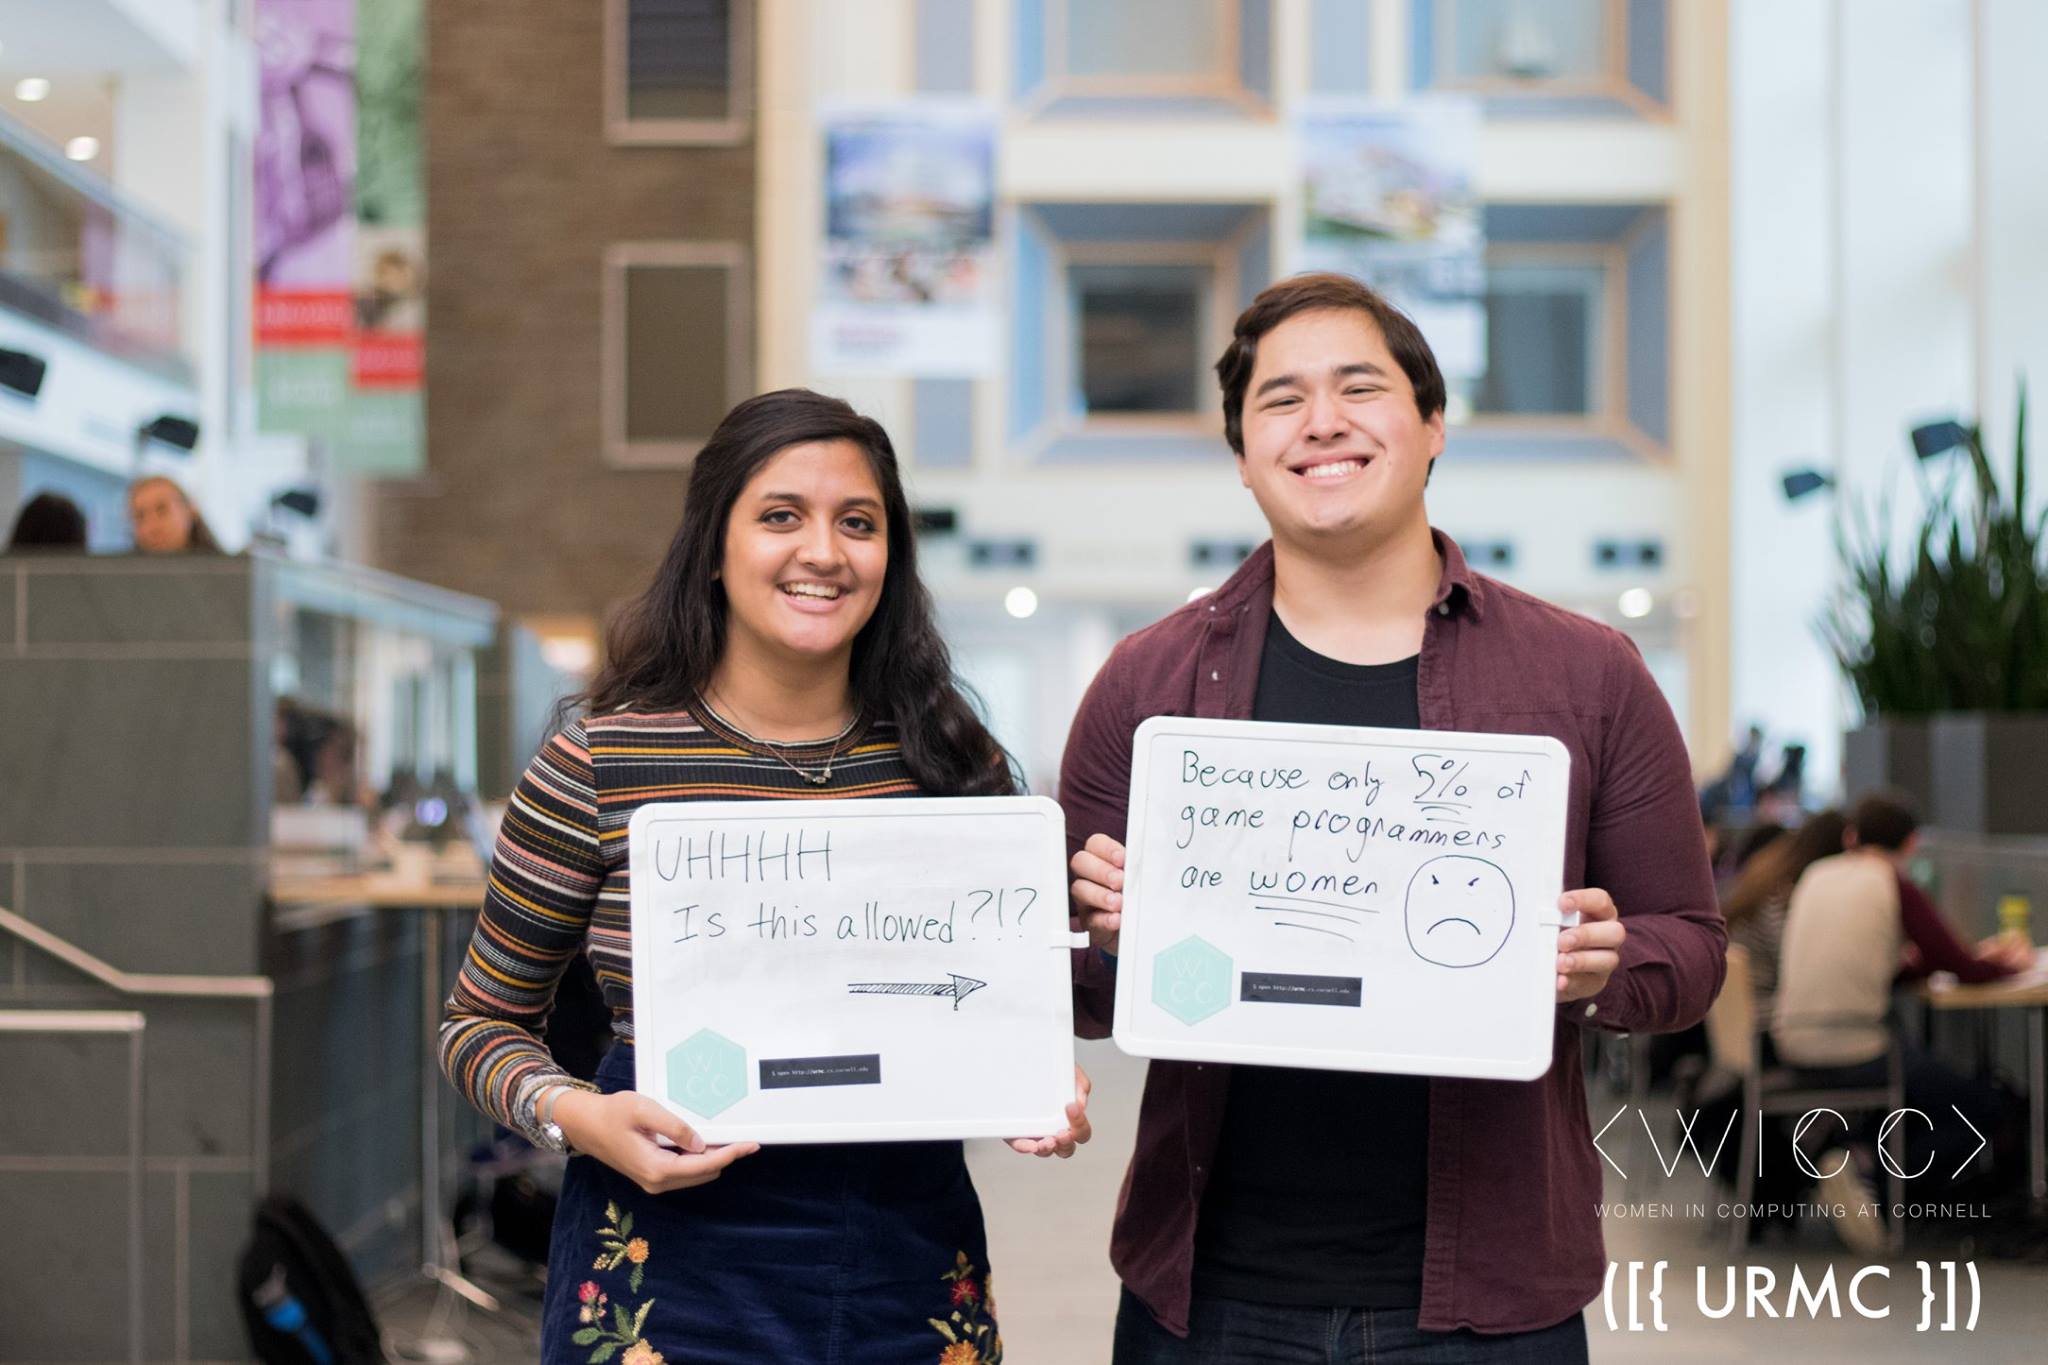 UHHHH
Is this allowed?!?
WI
CC
$ open http://urmc.cs.cornell.edu
Because only 5% of
game programmers
are women
WI
CC
$ open http://urmc.cs.cornell.edu
<WICC>
WOMEN IN COMPUTING AT CORNELL
([{ URMC }])